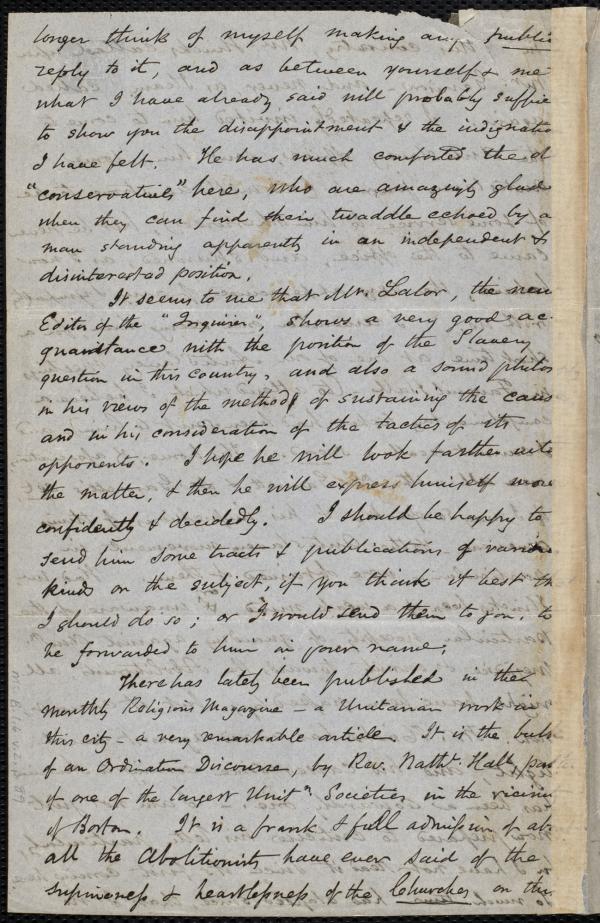 longer think of myself making any public
reply to it, and as between yourself & me
what I have already said will probably suffice
to show you the disappointment & the indignatio
I have felt. He has much comforted the ol
"conservatives" here, who are amazingly glad
when they can find their twaddle echoed by a
man standing apparently in an independent &
disinterested position.
It seems to me that Mr. Lalor, the new
Editor of the "Inquirer", shows a very good ac-
quaintance with the position of the Slavery
question in this country, and also a sound philos
in his views of the method of sustaining the caus
and in his consideration of the tactics of its
opponents. I hope he will look farther into
the matter, & then he will express himself more
confidently & decidedly. I should be happy to
send him some tracts & publications of various
kinds on the subject, if you think it best th
I should do so; or I would send them to you, to
be forwarded to him in your name.
There has lately been published in the
Monthly Religious Magazine - a Unitarian work in
this city - a very remarkable article. It is the bulk
of an Ordination Discourse, by Rev. Nathl. Hall, pas
of one of the largest Unitn. Societies in the vicini
of Boston. It is a frank & full admission of abt
all the Abolitionists have ever said of the
supineness & heartlessness of the Churches on the